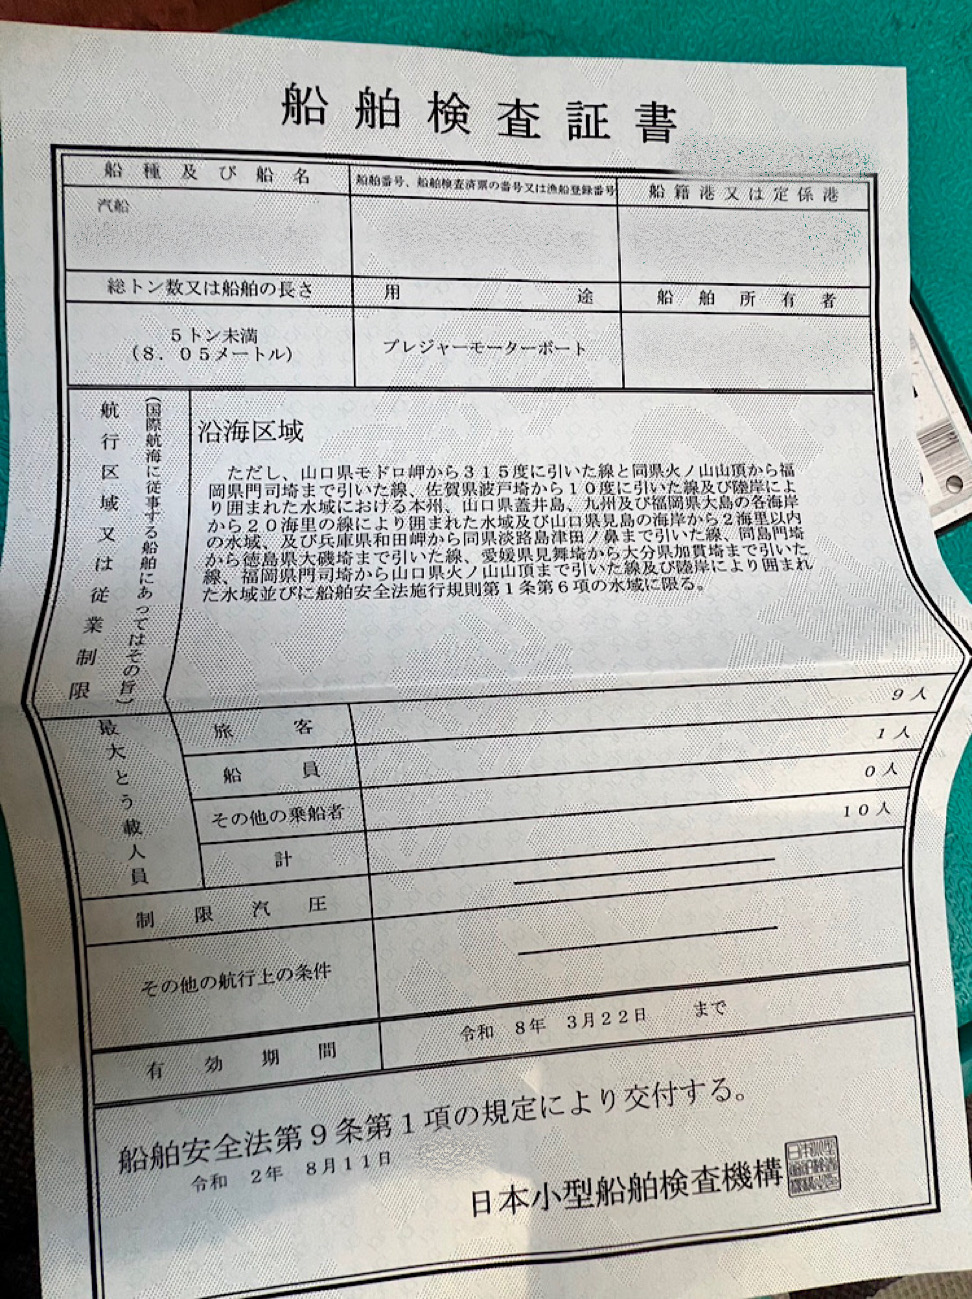 船舶検査証書
船種及び船名
船舶番号、船舶検査済票の番号又は漁船登録番号
船籍港又は定係港
汽船
総トン数又は船舶の長さ
用途
船舶所有者
5トン未満
(8.05メートル)
プレジャーモーターボート
航行区域又は従業制限
(国際航海に従事する船舶にあってはその旨)
沿海区域
ただし、山口県モドロ岬から315度に引いた線と同県火ノ山山頂から福
岡県門司埼まで引いた線、佐賀県波戸埼から10度に引いた線及び陸岸によ
り囲まれた水域における本州、山口県蓋井島、九州及び福岡県大島の各海岸
から20海里の線により囲まれた水域及び山口県見島の海岸から2海里以内
の水域、及び兵庫県和田岬から同県淡路島津田ノ鼻まで引いた線、同島門埼
から徳島県大磯埼まで引いた線、愛媛県見舞埼から大分県加貫埼まで引いた
線、福岡県門司埼から山口県火ノ山山頂まで引いた線及び陸岸により囲まれ
た水域並びに船舶安全法施行規則第1条第6項の水域に限る。
最大とう載人員
旅客
9人
船員
1人
その他の乗船者
0人
計
10人
制限汽圧
その他の航行上の条件
有効期間
令和 8年 3月22日 まで
船舶安全法第9条第1項の規定により交付する。
令和 2年 8月11日
日本小型船舶検査機構